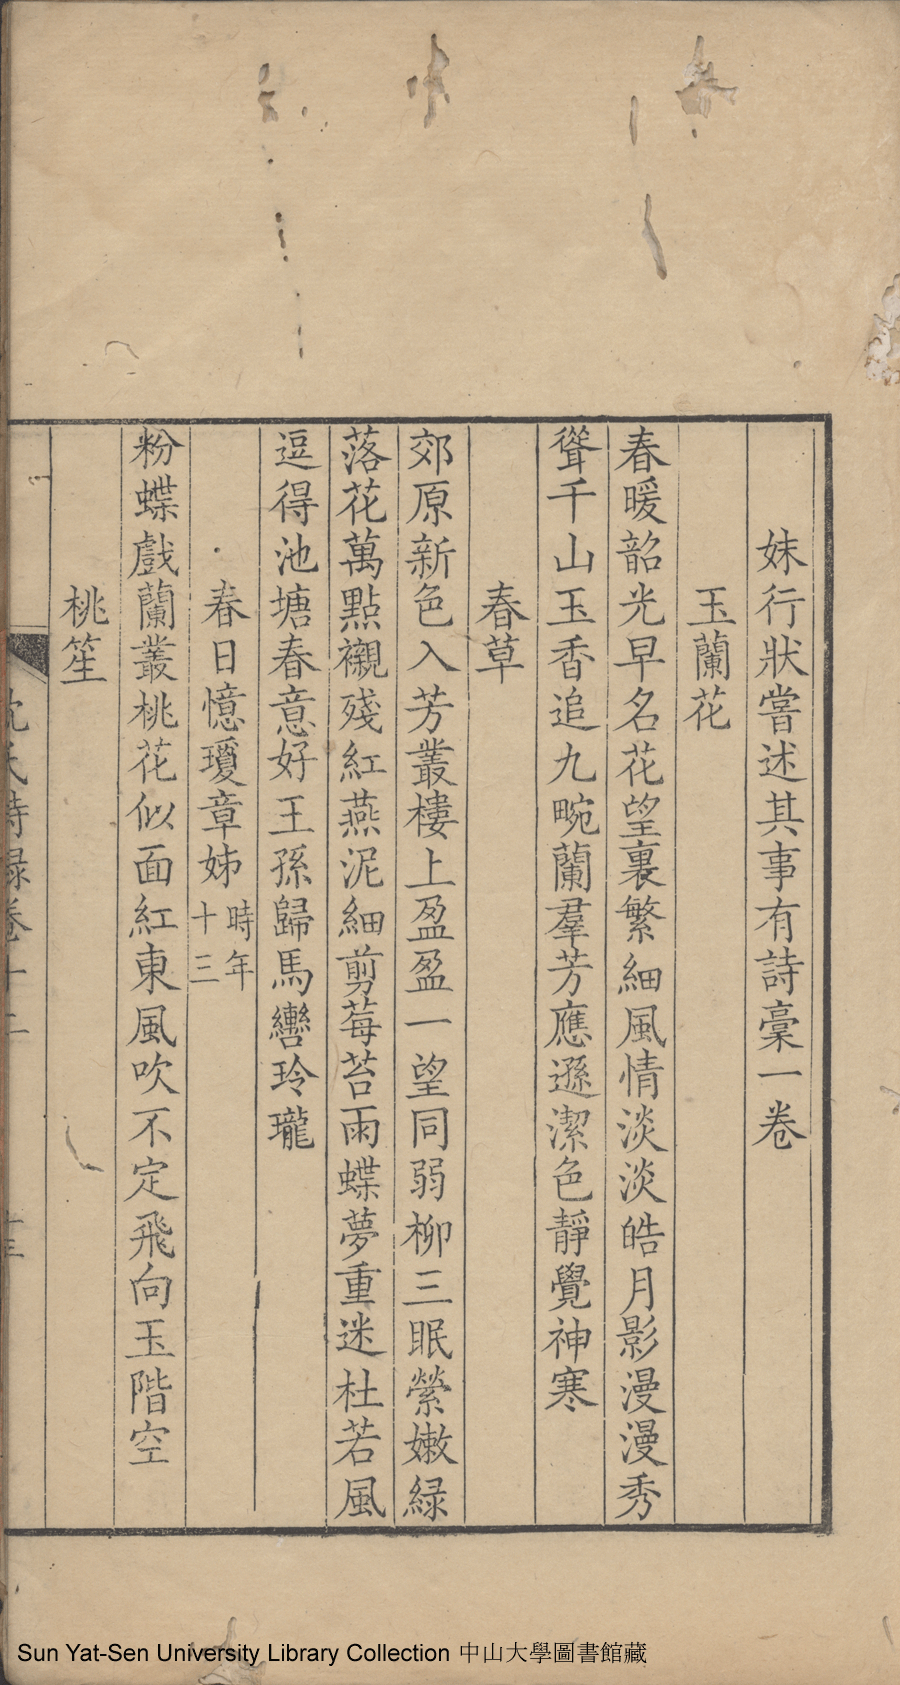 妹行狀嘗述其事有詩稾一卷
玉蘭花
春暖韶光早名花望裏繁細風情淡淡皓月影漫漫秀
聳千山玉香追九畹蘭羣芳應遜潔色靜覺神寒
春草
郊原新色入芳叢樓上盈盈一望同弱柳三眠縈嫩緑
落花萬點襯殘紅燕泥細剪莓苔雨蝶夢重迷杜若風
逗得池塘春意好王孫歸馬轡玲瓏
春日憶瓊章姊時年十三
粉蝶戲蘭叢桃花似面紅東風吹不定飛向玉階空
桃笙
沈氏詩録卷十二
十三
Sun Yat-Sen University Library Collection 中山大學圖書館藏